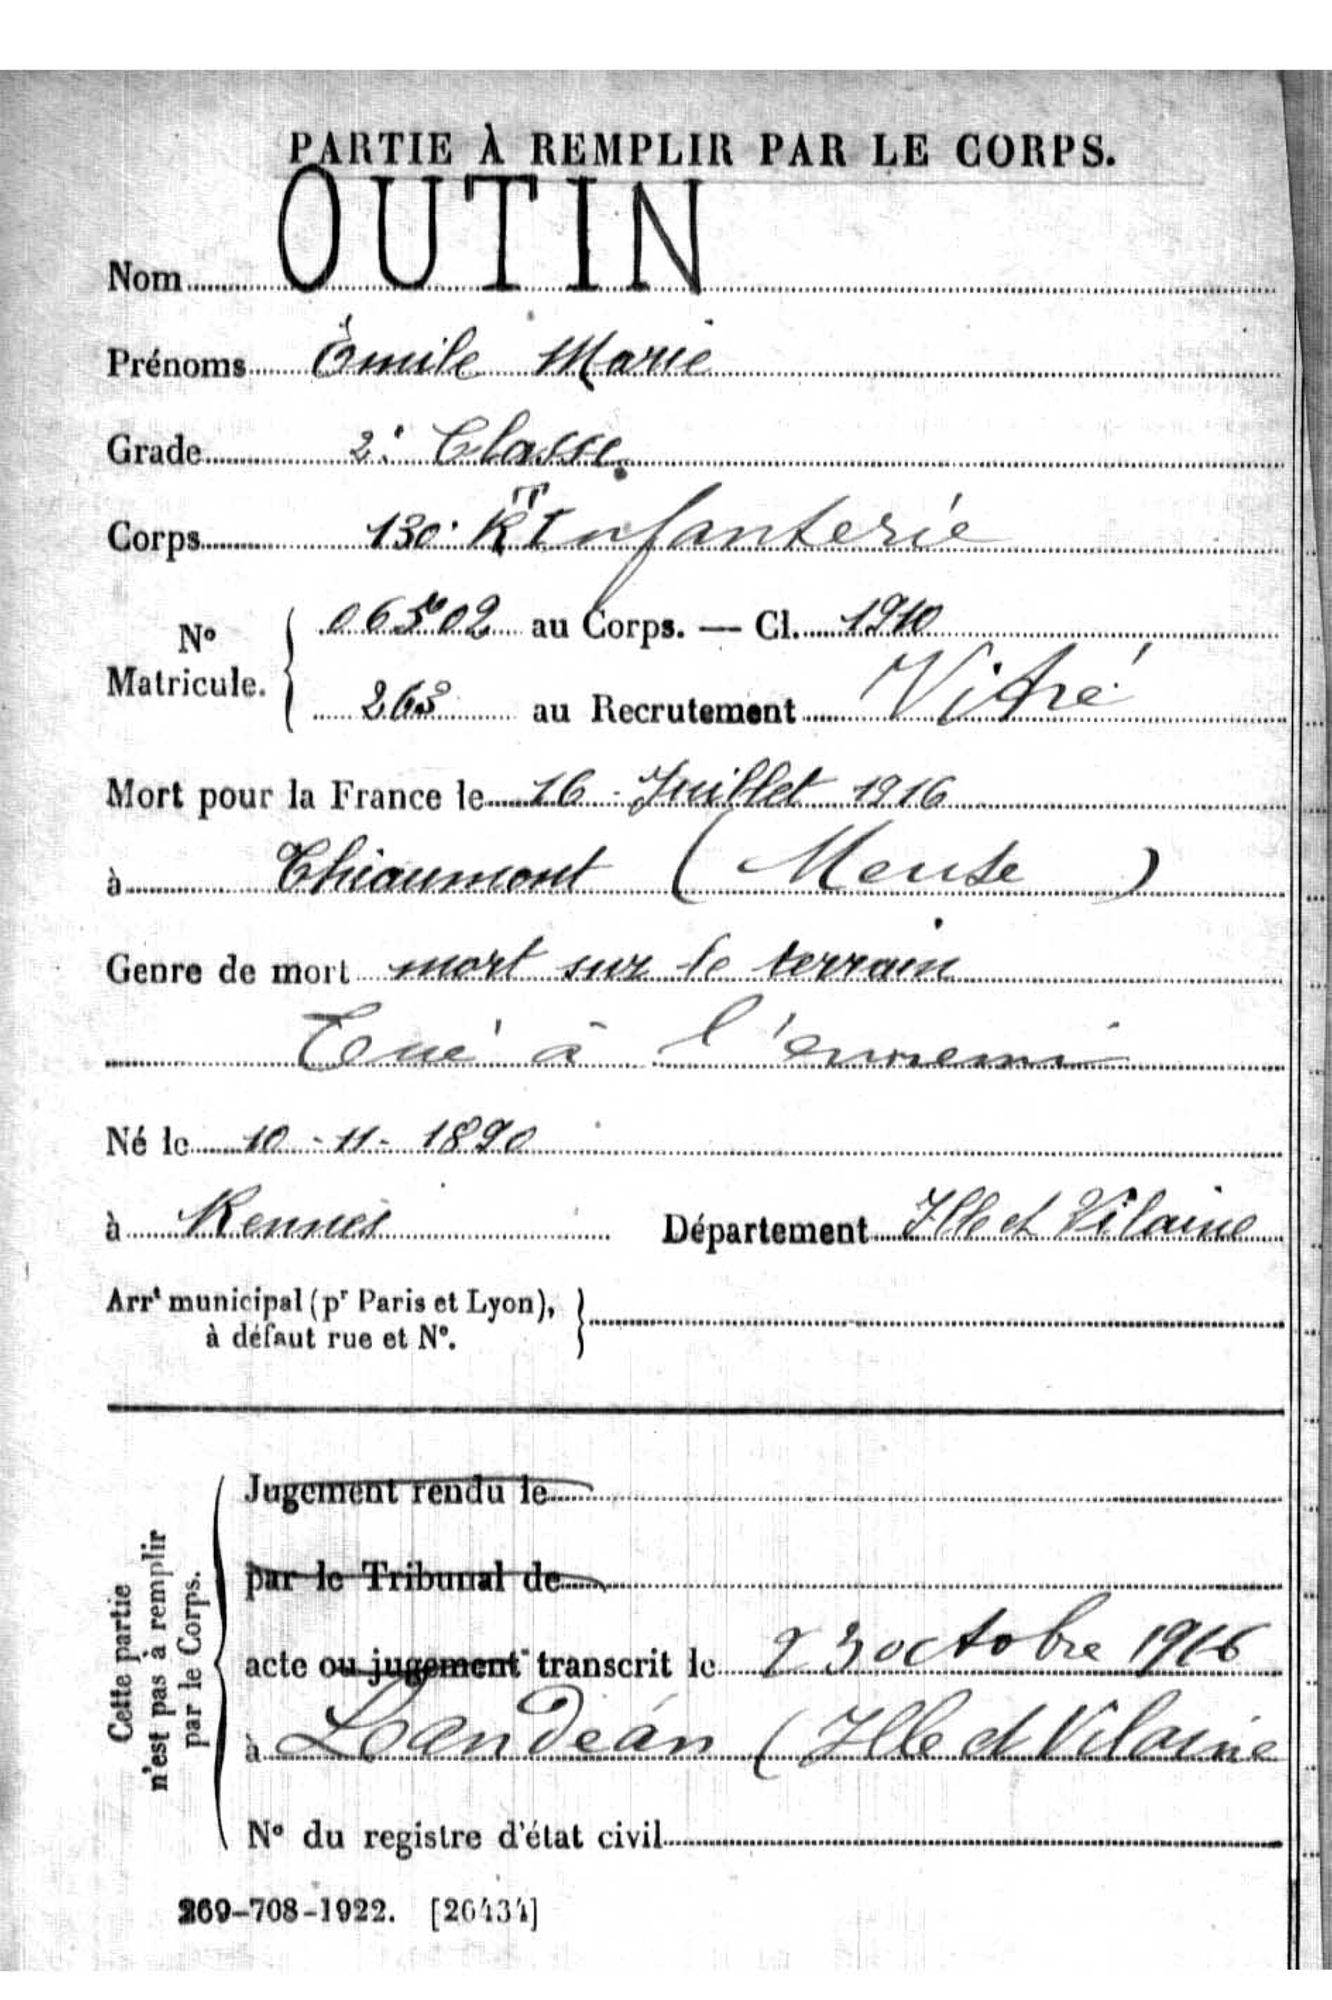 PARTIE À REMPLIR PAR LE CORPS.
Nom OUTIN
Prénoms Émile Marie
Grade 2e Classe
Corps 130e Rt Infanterie
N° Matricule. { 06502 au Corps. — Cl. 1910
263 au Recrutement Vitré
Mort pour la France le 16 Juillet 1916
à Thiaumont (Meuse)
Genre de mort mort sur le terrain
Tué à l'ennemi
Né le 10-11-1890
à Rennes Département Ille et Vilaine
Arrt municipal (pr Paris et Lyon),
à défaut rue et N°.
Cette partie
n'est pas à remplir
par le Corps.
Jugement rendu le
par le Tribunal de
acte ou jugement transcrit le 23 octobre 1916
à Landéan (Ille et Vilaine
N° du registre d'état civil
269-708-1922. [26434]